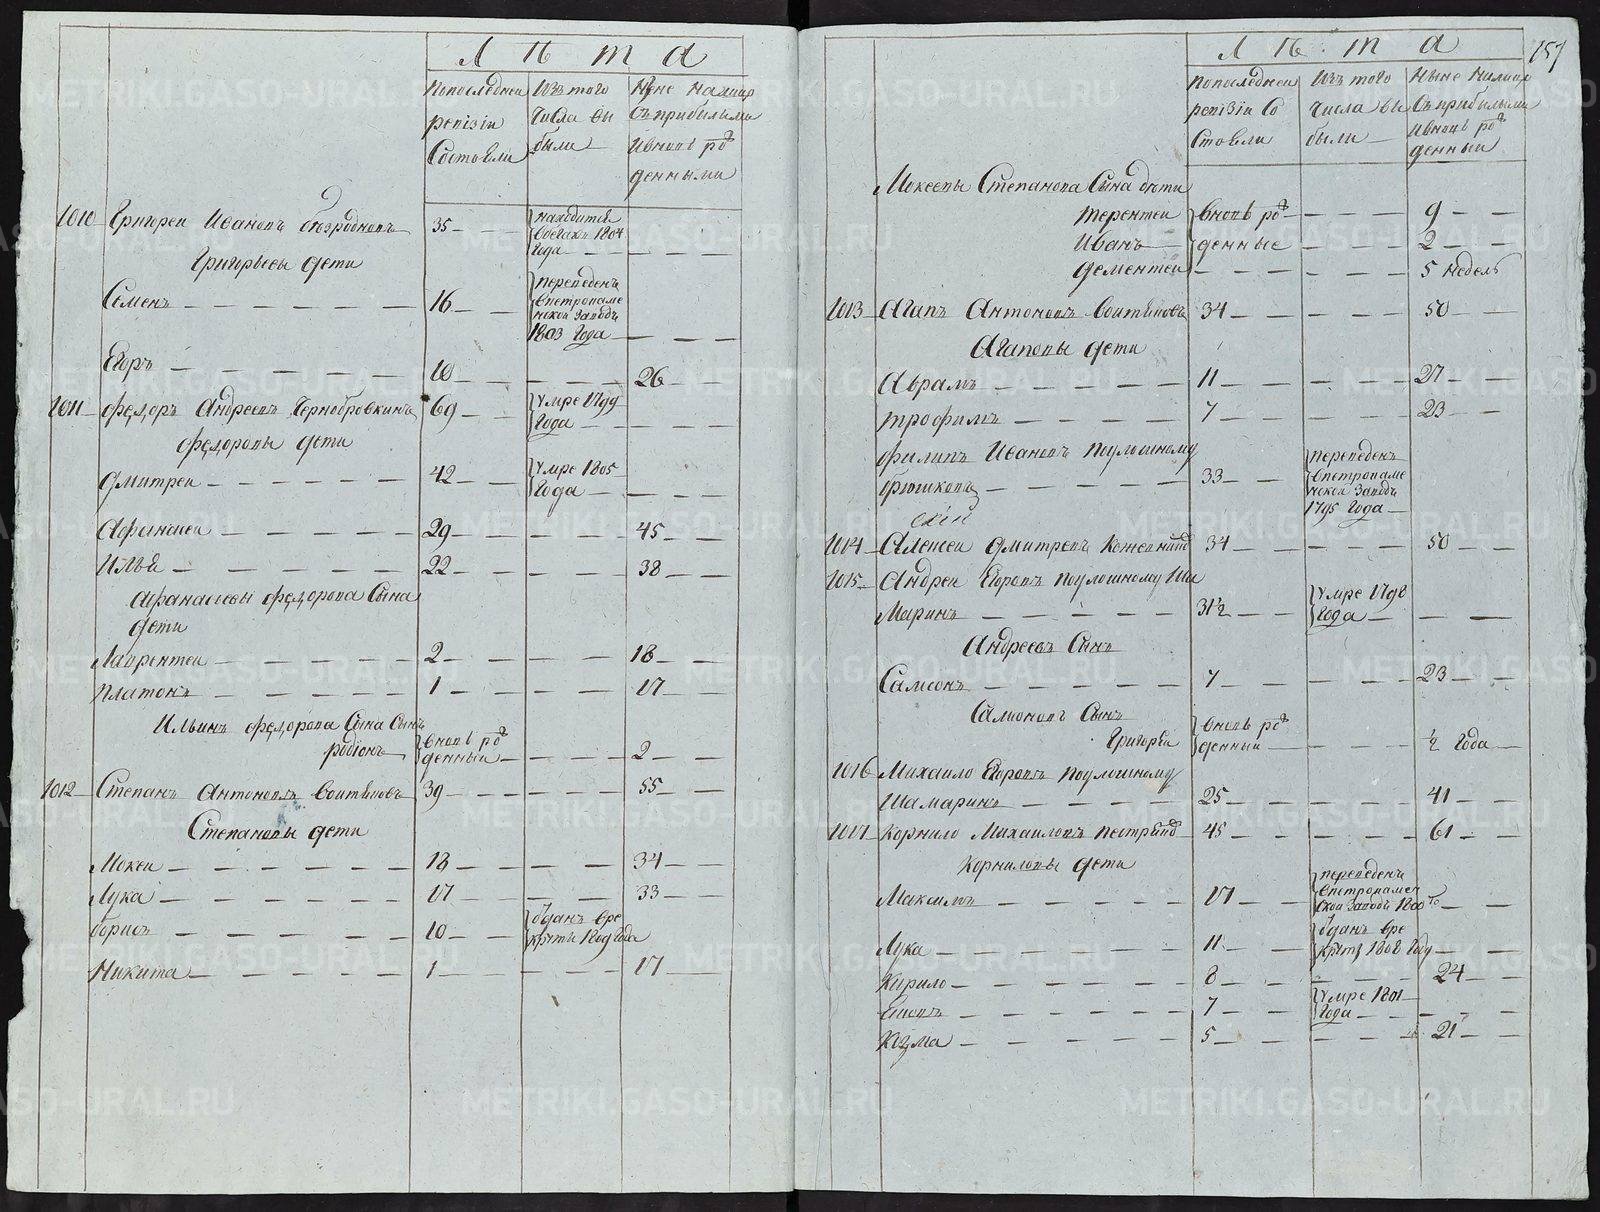 Лѣта
Попоследнеи ревизіи Состояли
Изъ того Числа вы были
Ныне Налицо Съприбылыми ивновь рожденными
1010 Григореи Ивановъ безродновъ 35 находится вбегахъ 1804 Года
Григорьевы дети
Семенъ 16 переведенъ впетрокаме нской Заводъ 1803 Года
Егоръ 10 26
1011 федоръ Андреевъ Чернобровкинъ 69 Умре 1799 Года
федоровы дети
дмитреи 42 Умре 1805 Года
Афанасеи 29 45
Илья 22 38
Афанасьевы федорова Сына
дети
Лаврентеи 2 18
платонъ 1 17
Ильинъ федорова Сына Сынъ
родіонъ вновь ро денныи 2
1012 Степанъ Антоновъ воитяновъ 39 55
Степановы дети
Мокеи 18 34
Лука 17 33
борисъ 10 Оданъ вре круты 1809 Года
Никита 1 17
157
Лѣта
Попоследнеи ревизіи Со Стояли
Изъ того Числа вы были
Ныне Налицо Съприбылыми ивновь ро денныи
Мокеевы Степанова Сына дети
терентеи вновь ро 9
Иванъ денные 2
дементеи 5 недель
1013 Агапъ Антоновъ воитяновъ 34 50
Агаповы дети
Абрамъ 11 27
трофимъ 7 23
филипъ Ивановъ поулошному
брюшковъ 33 переведенъ впетрокаме нской Заводъ 1795 Года
1014 Алексеи дмитревъ Кожевник 34 50
1015 Андреи Егоровъ поулошному Ша
Маринъ 31½ Умре 1798 Года
Андреевъ Сынъ
Самсонъ 7 23
Самсоновъ Сынъ
Григореи вновь ро денныи ½ Года
1016 Михаило Егоровъ поулошному
Шамаринъ 25 41
1017 Корнило Михаиловъ пестри 45 61
Корниловы дети
Максимъ 17 переведенъ впетрокамен ской Заводъ 1800 го
Лука 11 Оданъ вре круты 1808 Году
Кирило 8 24
Умре 1801 Года 7
Козма 5 21
METRIKI.GASO-URAL.RU